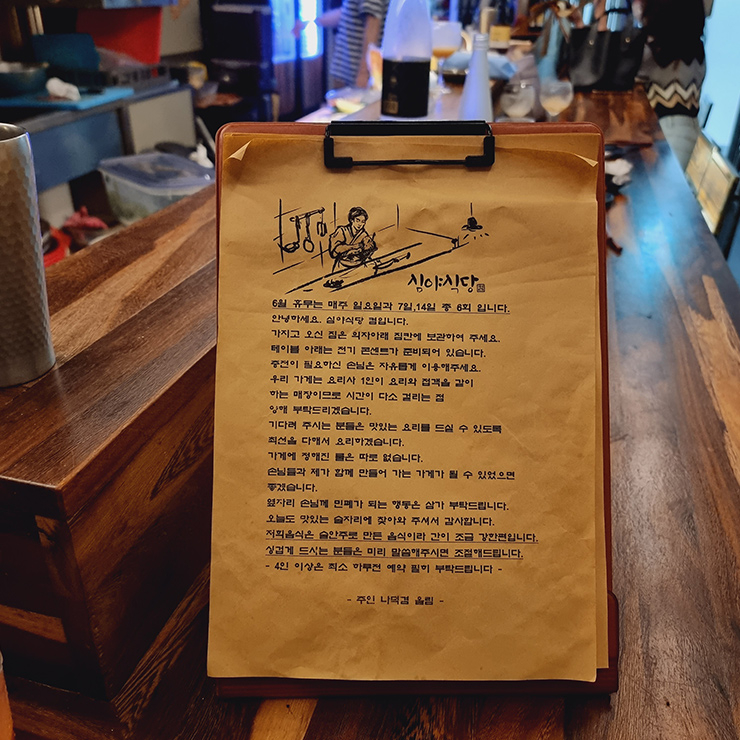 심야식당
6월 휴무는 매주 일요일과 7일,14일 총 6회 입니다.
안녕하세요. 심야식당 겸입니다.
가지고 오신 짐은 의자아래 짐칸에 보관하여 주세요.
테이블 아래는 전기 콘센트가 준비되어 있습니다.
충전이 필요하신 손님은 자유롭게 이용해주세요.
우리 가게는 요리사 1인이 요리와 접객을 같이
하는 매장이므로 시간이 다소 걸리는 점
양해 부탁드리겠습니다.
기다려 주시는 분들은 맛있는 요리를 드실 수 있도록
최선을 다해서 요리하겠습니다.
가게에 정해진 룰은 따로 없습니다.
손님들과 제가 함께 만들어 가는 가게가 될 수 있었으면
좋겠습니다.
옆자리 손님께 민폐가 되는 행동은 삼가 부탁드립니다.
오늘도 맛있는 술자리에 찾아와 주셔서 감사합니다.
저희음식은 술안주로 만든 음식이라 간이 조금 강한편입니다.
싱겁게 드시는 분들은 미리 말씀해주시면 조절해드립니다.
- 4인 이상은 최소 하루전 예약 필히 부탁드립니다 -
- 주인 나덕겸 올림 -